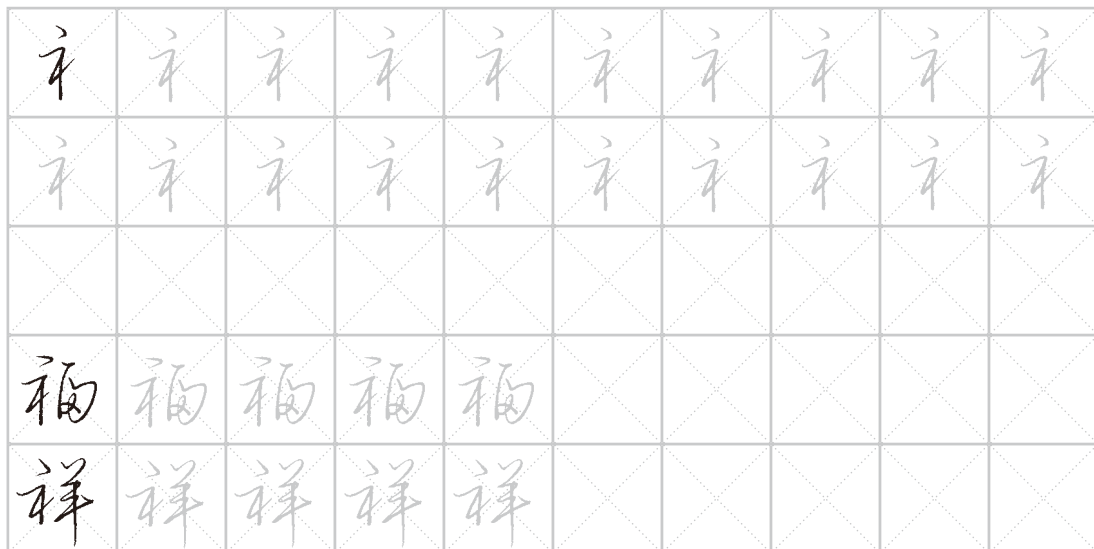 礻礻礻礻礻礻礻礻礻礻
礻礻礻礻礻礻礻礻礻礻
福福福福福
祥祥祥祥祥